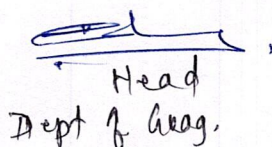 Head
Dept of Geog.